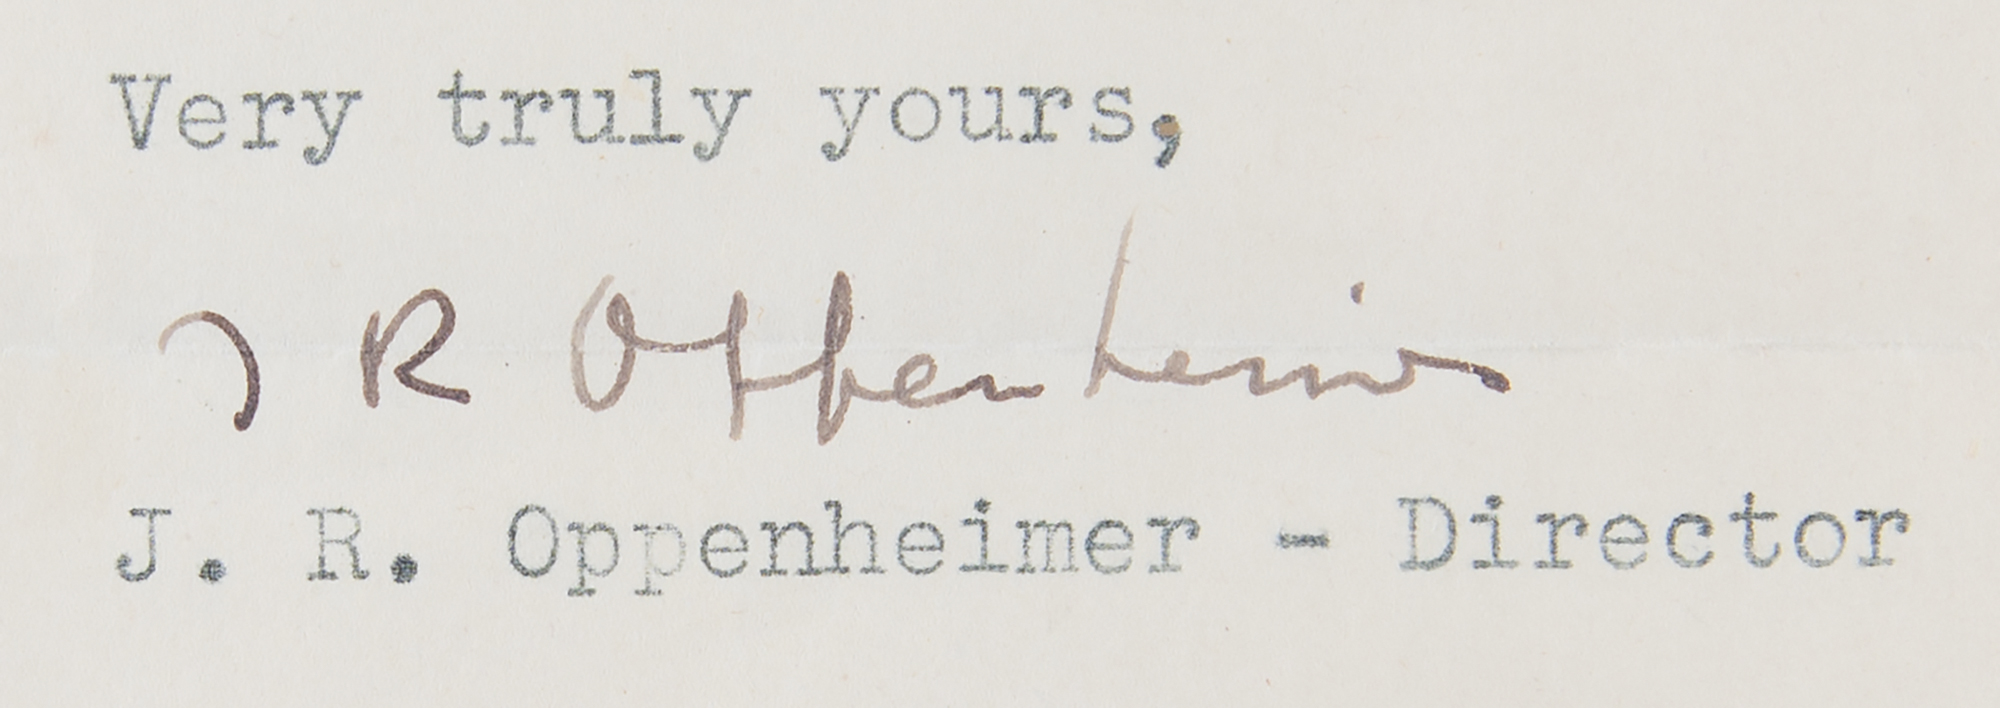 Very truly yours,
J R Oppenheimer
J. R. Oppenheimer - Director